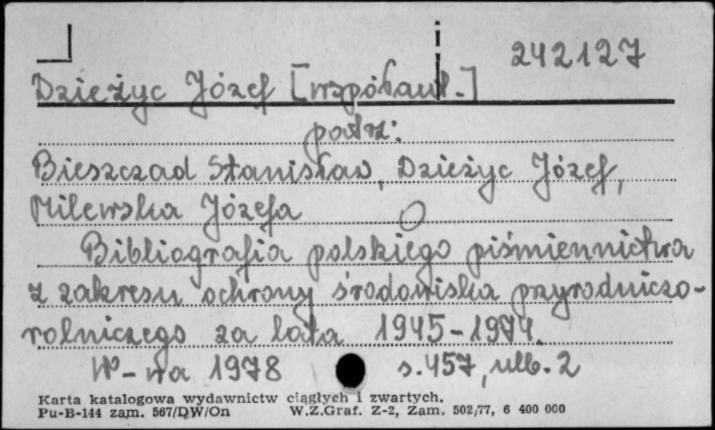 242127
Dzieżyc Józef [współaut.]
patrz:
Bieszczad Stanisław, Dzieżyc Józef,
Milewska Józefa
Bibliografia polskiego piśmiennictwa
z zakresu ochrony środowiska przyrodniczo-
rolniczego za lata 1945-1974.
W-wa 1978 s. 457, nlb. 2
Karta katalogowa wydawnictw ciągłych i zwartych.
Pu-B-144 zam. 567/DW/On W.Z.Graf. Z-2, Zam. 502/77, 6 400 000